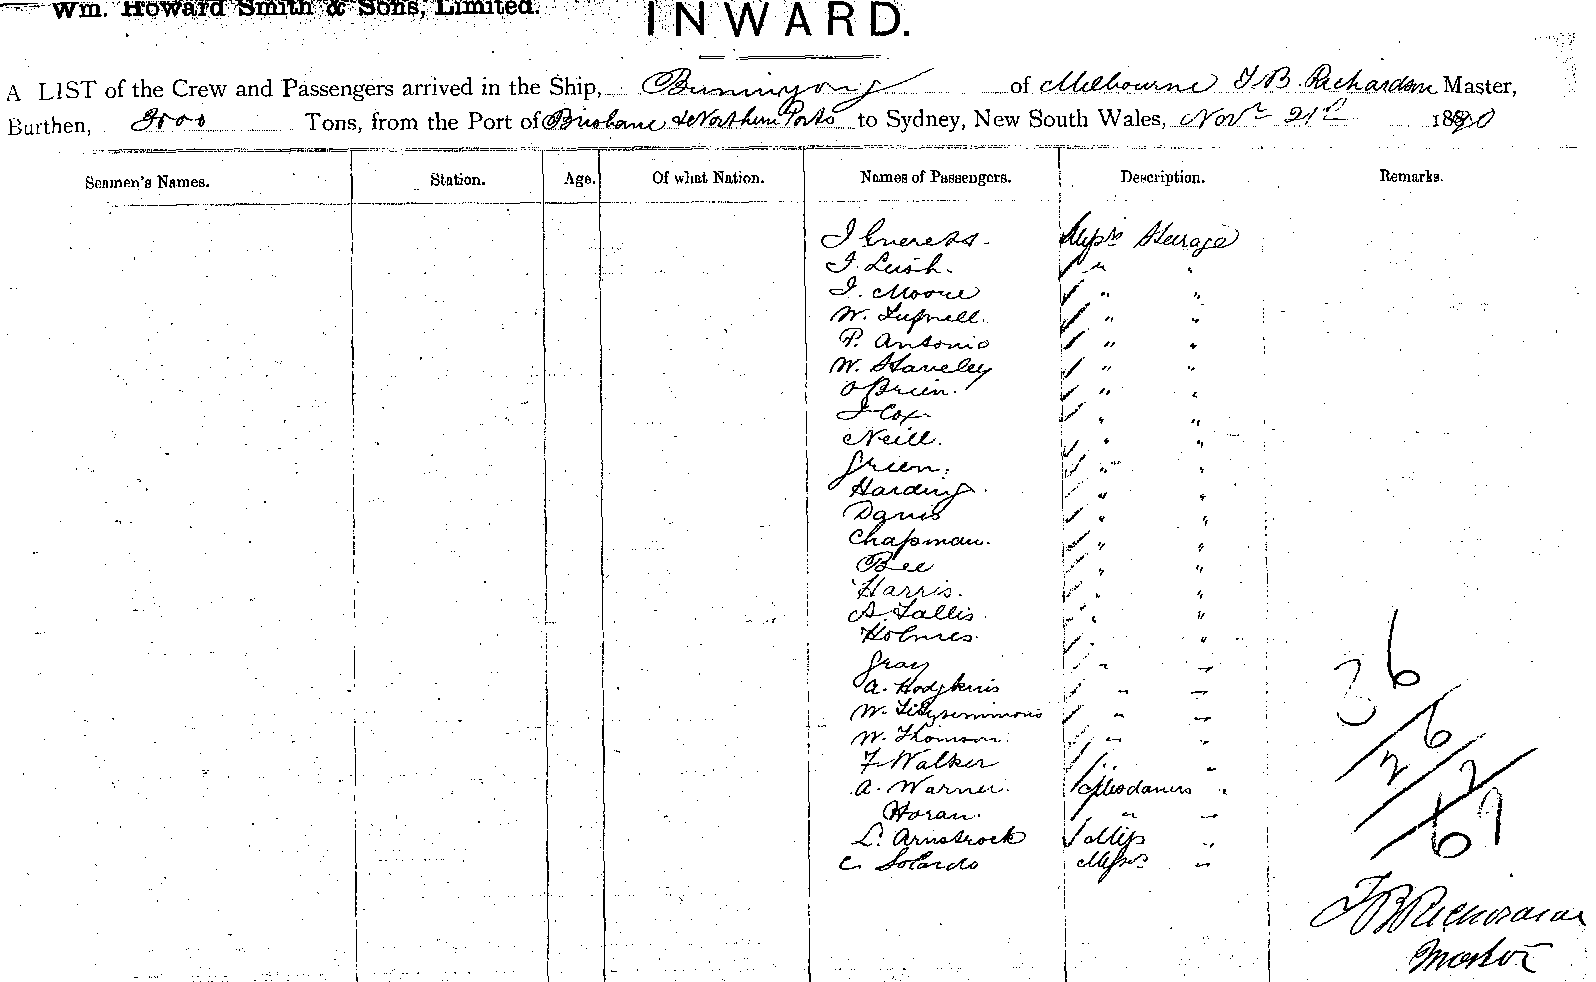 Wm. Howard Smith & Sons, Limited.
INWARD.
A LIST of the Crew and Passengers arrived in the Ship, Buninyong of Melbourne T B. Richardson Master,
Burthen, 3000 Tons, from the Port of Brisbane & Northern Ports to Sydney, New South Wales, Novr 21st 1890
Seamen's Names. Station. Age. Of what Nation. Names of Passengers. Description. Remarks.
J Everess. Messrs Steerage
J. Leish. " "
J. Moore " "
W. Tufnell. " "
P. Antonio " "
W. Staveley " "
O'Brien. " "
J Cox " "
Neill. " "
Green. " "
Harding. " "
Davis " "
Chapman. " "
Bee " "
Harris. " "
A. Tallis. " "
Holmes. " "
Gray " "
A. Hodgkins " "
W. " "
W. Thomson. " "
F. Walker " "
A. Warner. Mesdames "
Horan. " "
L. Arnstrock Miss "
C Solardo Messrs "
36
26
7
69
T B Richardson
Master